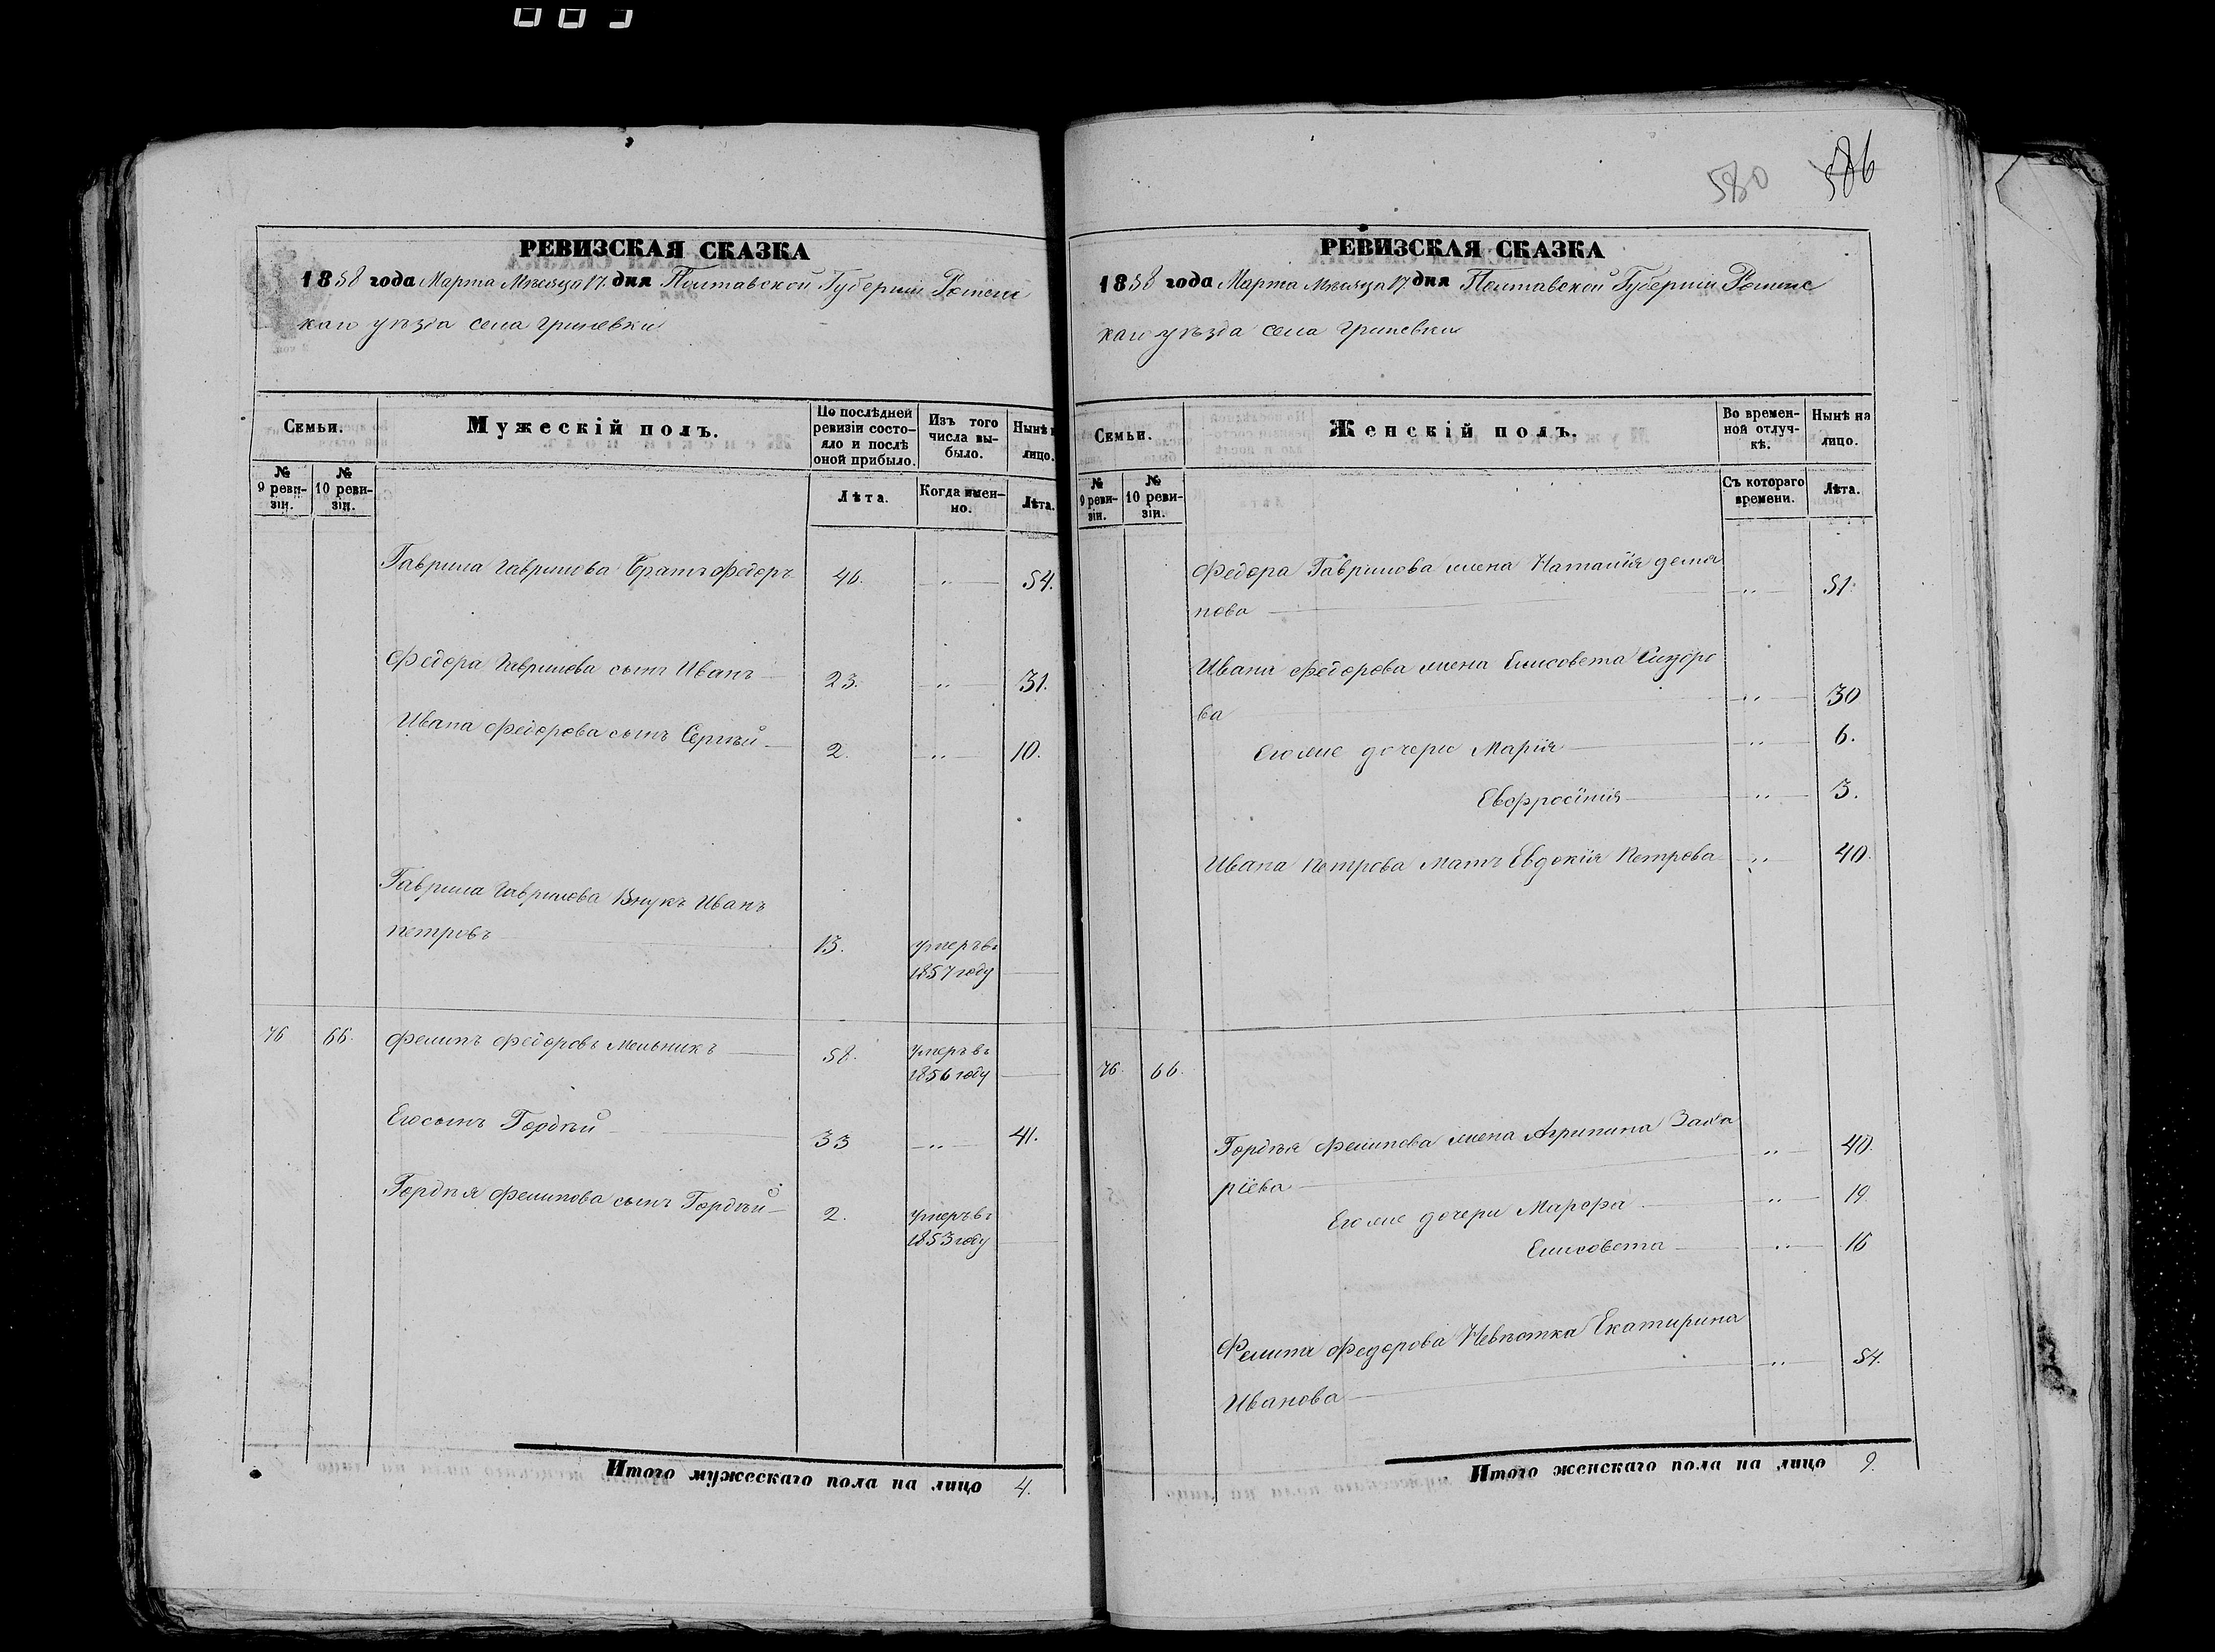 580 586
РЕВИЗСКАЯ СКАЗКА
1858 года Марта Мѣсяца 17 дня Полтавской Губерніи Роменс
каго уѣзда села Гриневки
Семьи.
Мужескій полъ.
По послѣдней ревизіи состояло и послѣ оной прибыло.
Изъ того числа выбыло.
Нынѣ
лицо.
№ 9 ревизіи.
№ 10 ревизіи.
Лѣта.
Когда именно.
Лѣта.
Гаврила Гаврилова Братъ Федоръ 46. „ 54.
Федора Гаврилова сынъ Иванъ 23. „ 31.
Ивана Федорова сынъ Сергѣй 2. „ 10.
Гаврила Гаврилова Внукъ Иванъ
Петровъ 13. умеръ въ
1857 году
76 66. Фелипъ Федоровъ Мельникъ 58. умеръ въ
1856 году
Его сынъ Гордѣй 33 „ 41.
Гордѣя Фелипова сынъ Гордѣй 2. умеръ въ
1853 году
Итого мужескаго пола на лицо 4.
РЕВИЗСКАЯ СКАЗКА
1858 года Марта Мѣсяца 17 дня Полтавской Губерніи Роменс
каго уѣзда села Гриневки
Семьи.
Женскій полъ.
Во временной отлучкѣ.
Нынѣ на лицо.
№ 9 ревизіи.
№ 10 ревизіи.
Съ котораго времени.
Лѣта.
Федора Гаврилова жена Наталія Демя
нова „ 51.
Ивана Федорова жена Елисовета Сидоро
ва „ 30
Его же дочери Марія „ 6.
Евфросинія „ 3.
Ивана Петрова Мать Евдокія Петрова „ 40.
76. 66.
Гордѣя Фелипова жена Агрипина Заха
ріева „ 40.
Его же дочери Марфа „ 19
Елисовета „ 16
Фелипа Федорова Невѣстка Екатирина
Иванова „ 54.
Итого женскаго пола на лицо 9.